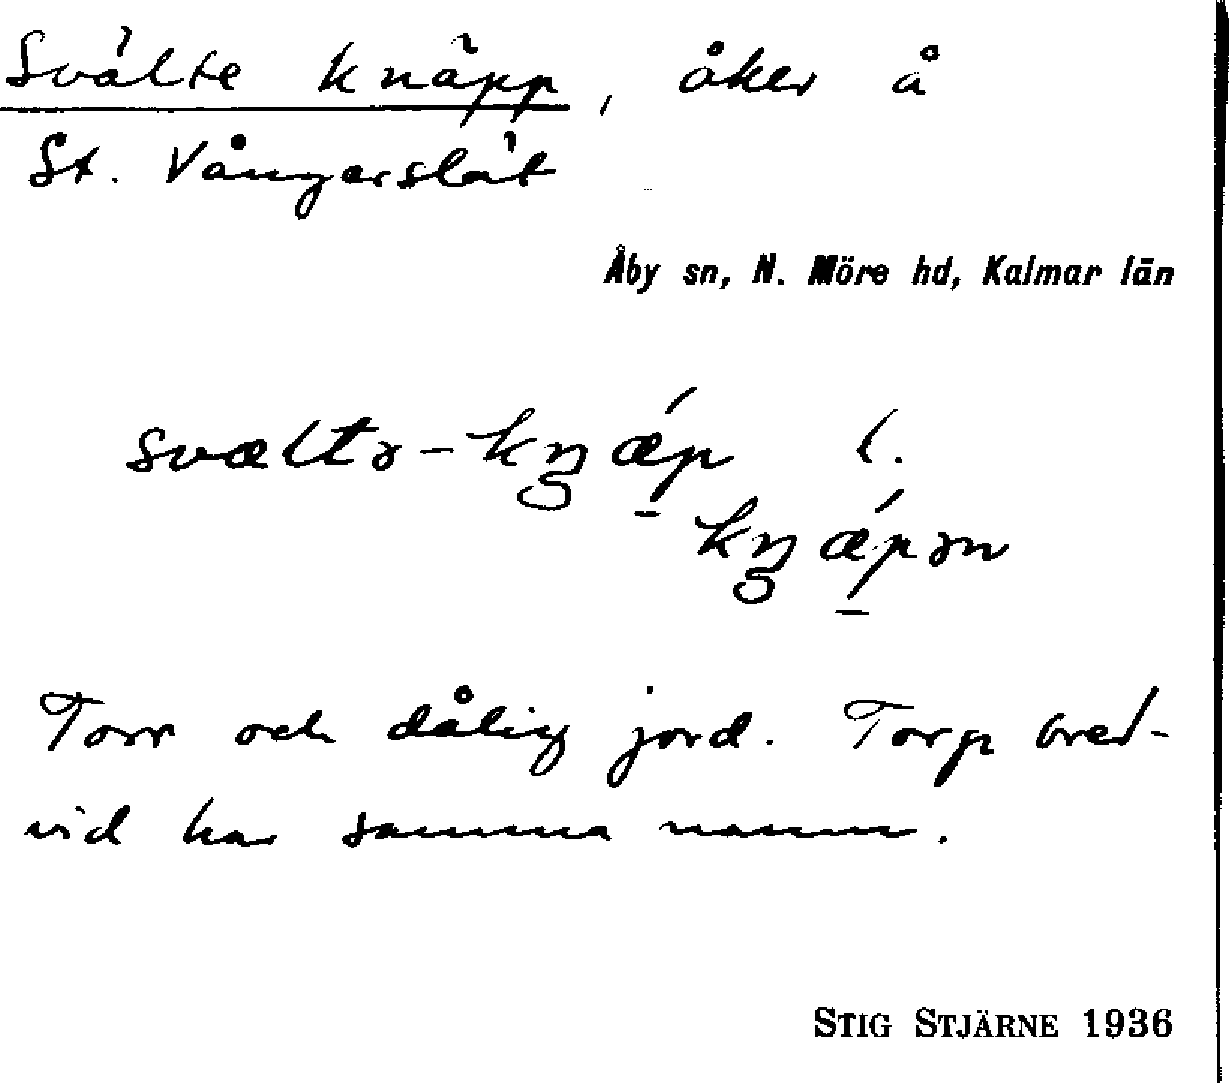 Svälte knäpp, åker å
St. Vångerslät
Åby sn, N. Möre hd, Kalmar län
svæltə-kn̥ǽp l.
kn̥ǽpən
Torr och dålig jord. Torp bred-
vid har samma namn.
STIG STJÄRNE 1936